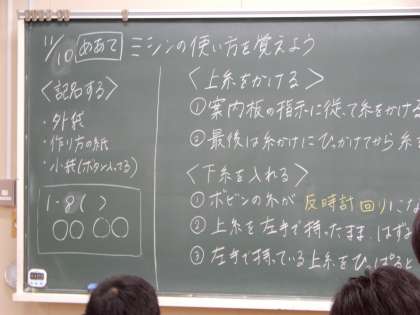 11/10 めあて ミシンの使い方を覚えよう
〈記名する〉
・外袋
・作り方の紙
・小袋(ボタン入ってる)
1-8( )
○○ ○○
〈上糸をかける〉
①案内板の指示に従って糸をかける
②最後は糸かけにひっかけてから糸
〈下糸を入れる〉
①ボビンの糸が 反時計回りにな
②上糸を左手で持ったまま、はずみ
③左手で持っている上糸をひっぱると